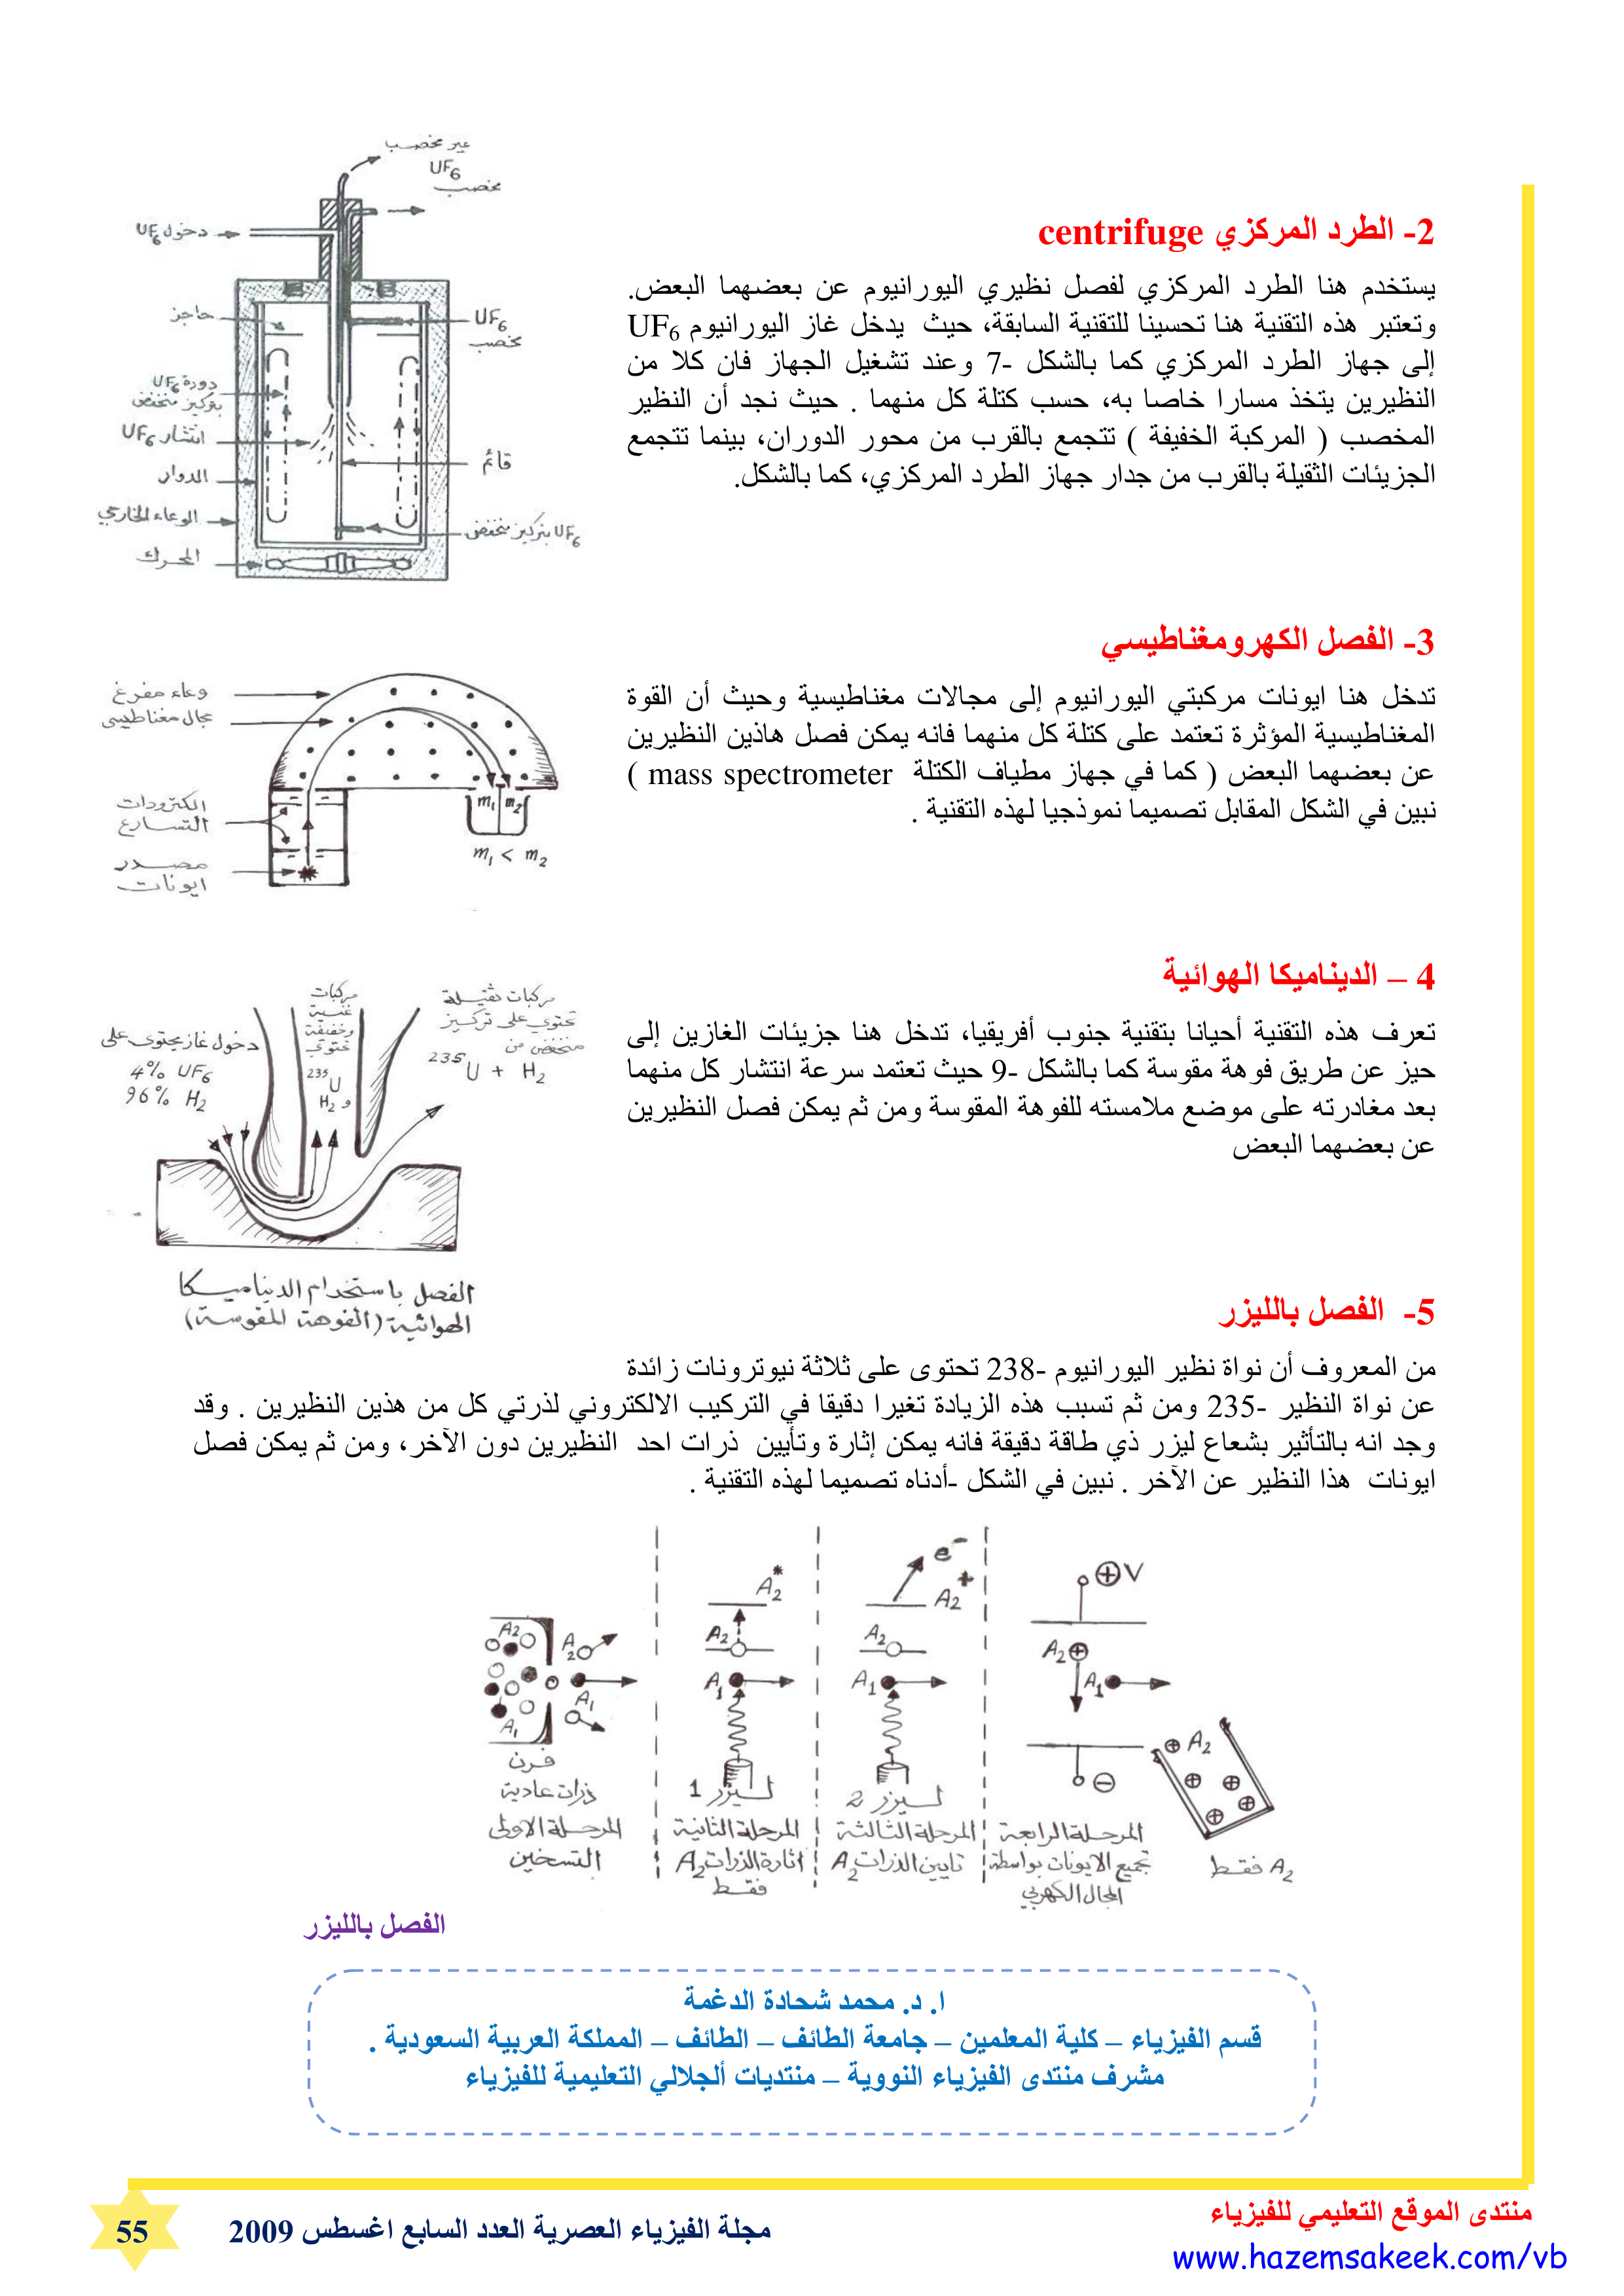 غير مخصب
UF6
مخصب
دخول UF6
حاجز
UF6
مخصب
دورة UF6
بتركيز منخفض
انتشار UF6
قائم
الدوار
الوعاء الخارجي
UF6 بتركيز منخفض
المحرك
2- الطرد المركزي centrifuge
يستخدم هنا الطرد المركزي لفصل نظيري اليورانيوم عن بعضهما البعض.
وتعتبر هذه التقنية هنا تحسينا للتقنية السابقة، حيث يدخل غاز اليورانيوم UF6
إلى جهاز الطرد المركزي كما بالشكل -7 وعند تشغيل الجهاز فان كلا من
النظيرين يتخذ مسارا خاصا به، حسب كتلة كل منهما . حيث نجد أن النظير
المخصب ( المركبة الخفيفة ) تتجمع بالقرب من محور الدوران، بينما تتجمع
الجزيئات الثقيلة بالقرب من جدار جهاز الطرد المركزي، كما بالشكل.
3- الفصل الكهرومغناطيسي
تدخل هنا ايونات مركبتي اليورانيوم إلى مجالات مغناطيسية وحيث أن القوة
المغناطيسية المؤثرة تعتمد على كتلة كل منهما فانه يمكن فصل هاذين النظيرين
عن بعضهما البعض ( كما في جهاز مطياف الكتلة mass spectrometer )
نبين في الشكل المقابل تصميما نموذجيا لهذه التقنية .
وعاء مفرغ
مجال مغناطيسي
الكترودات
التسارع
m1 m2
m1 < m2
مصدر
ايونات
4 – الديناميكا الهوائية
تعرف هذه التقنية أحيانا بتقنية جنوب أفريقيا، تدخل هنا جزيئات الغازين إلى
حيز عن طريق فوهة مقوسة كما بالشكل -9 حيث تعتمد سرعة انتشار كل منهما
بعد مغادرته على موضع ملامسته للفوهة المقوسة ومن ثم يمكن فصل النظيرين
عن بعضهما البعض
مركبات ثقيلة
تحتوي على تركيز
منخفض من
235U + H2
مركبات
غنية
وخفيفة
تحتوي
235U
و H2
دخول غاز يحتوى على
4% UF6
96% H2
الفصل باستخدام الديناميكا
الهوائية (الفوهة المقوسة)
5- الفصل بالليزر
من المعروف أن نواة نظير اليورانيوم -238 تحتوى على ثلاثة نيوترونات زائدة
عن نواة النظير -235 ومن ثم تسبب هذه الزيادة تغيرا دقيقا في التركيب الالكتروني لذرتي كل من هذين النظيرين . وقد
وجد انه بالتأثير بشعاع ليزر ذي طاقة دقيقة فانه يمكن إثارة وتأيين ذرات احد النظيرين دون الآخر، ومن ثم يمكن فصل
ايونات هذا النظير عن الآخر . نبين في الشكل -أدناه تصميما لهذه التقنية .
A2
A2
A1
A1
فرن
ذرات عادية
المرحلة الاولى
التسخين
A2*
A2
A1
ليزر 1
المرحلة الثانية
اثارة الذرات A2
فقط
e-
A2+
A2
A1
ليزر 2
المرحلة الثالثة
تايين الذرات A2
⊕V
A2⊕
A1
⊖
المرحلة الرابعة
تجميع الايونات بواسطة
المجال الكهربي
⊕ A2
A2 فقط
الفصل بالليزر
ا. د. محمد شحادة الدغمة
قسم الفيزياء – كلية المعلمين – جامعة الطائف – الطائف – المملكة العربية السعودية .
مشرف منتدى الفيزياء النووية – منتديات ألجلالي التعليمية للفيزياء
منتدى الموقع التعليمي للفيزياء
www.hazemsakeek.com/vb
مجلة الفيزياء العصرية العدد السابع اغسطس 2009
55